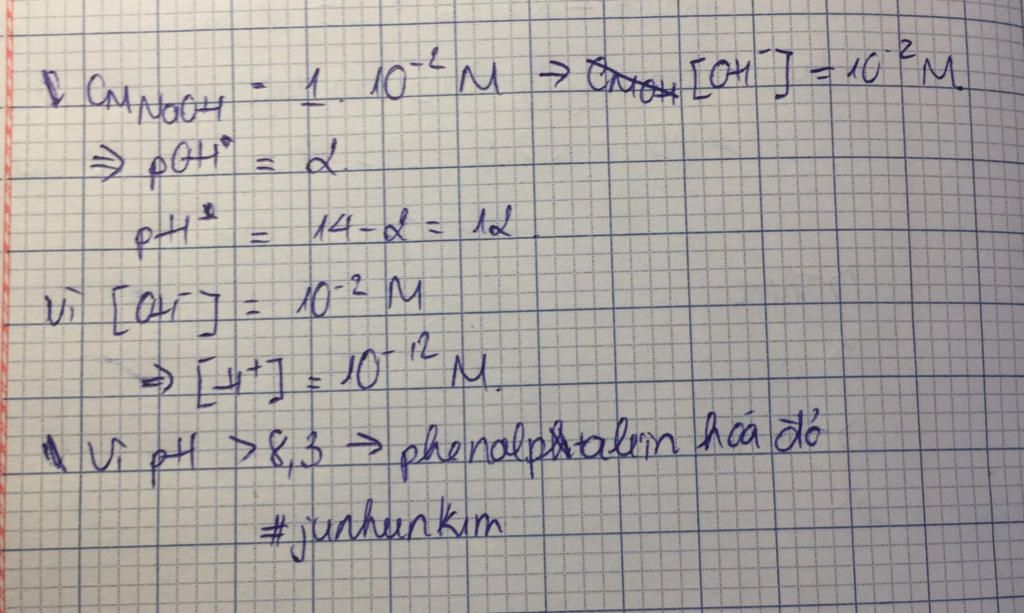 CM NaOH = 1. 10⁻² M → [OH⁻] = 10⁻² M
⇒ pOH = 2.
pH = 14 - 2 = 12.
Vì [OH⁻] = 10⁻² M
⇒ [H⁺] = 10⁻¹² M.
Vì pH > 8,3 → phenolphtalein hoá đỏ
#junhunkim